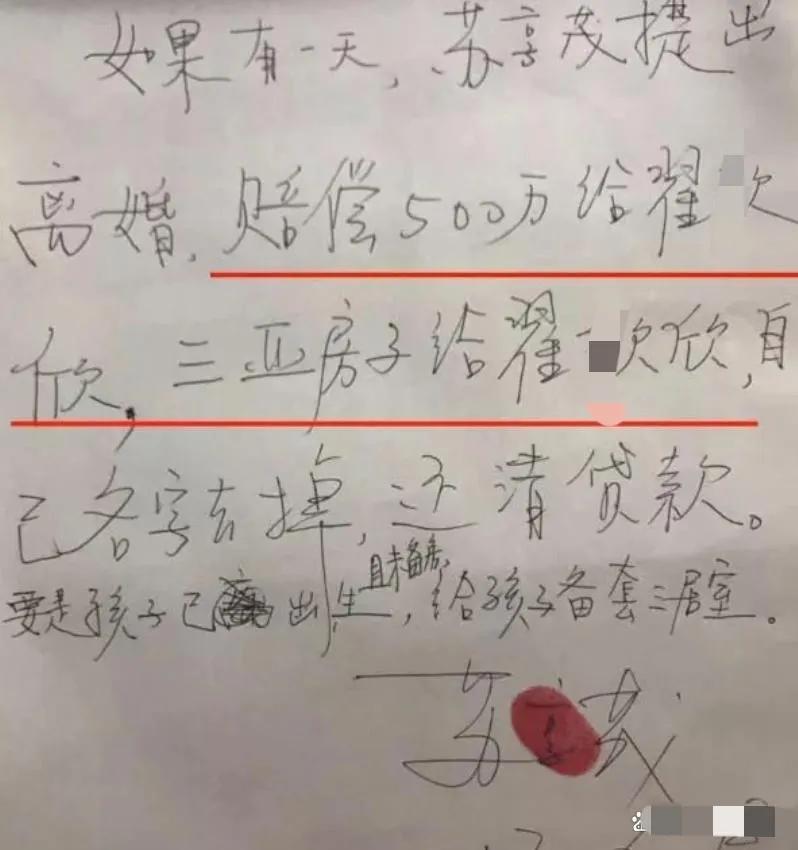 如果有一天,苏享茂提出
离婚,赔偿500万给翟欠
欣,三亚房子给翟欣,自
己名字去掉,还清贷款。
且未备房,
要是孩子已出生,给孩子备套三居室。
苏享茂